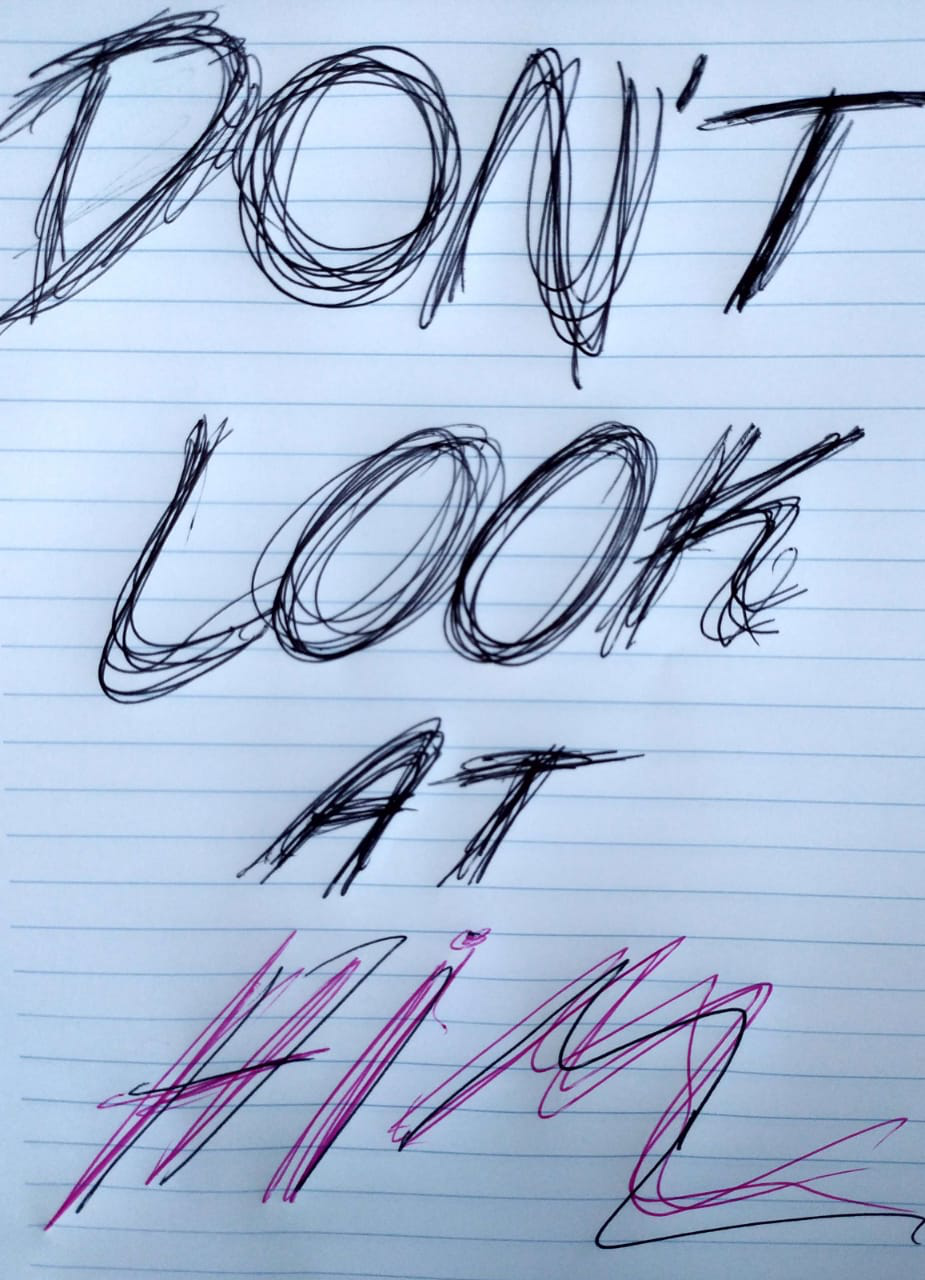 DON'T
LOOK
AT
HiM